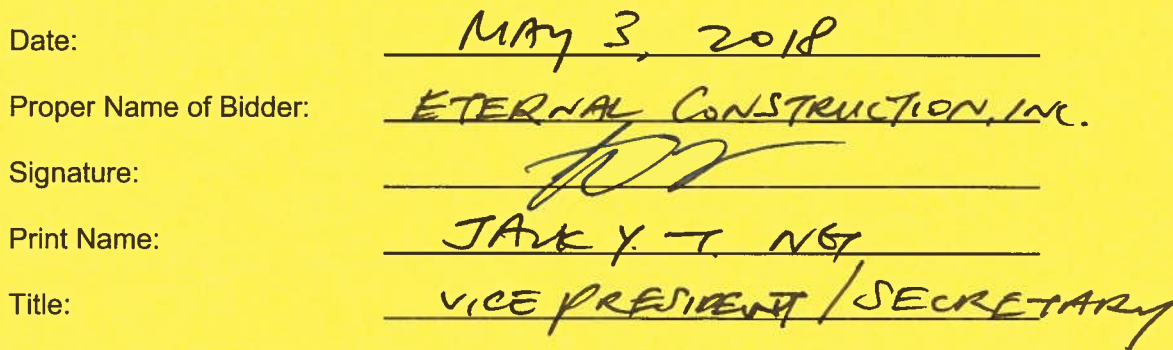 Date: MAY 3, 2018
Proper Name of Bidder: ETERNAL CONSTRUCTION, INC.
Signature:
Print Name: JACK Y. T. NG
Title: VICE PRESIDENT / SECRETARY